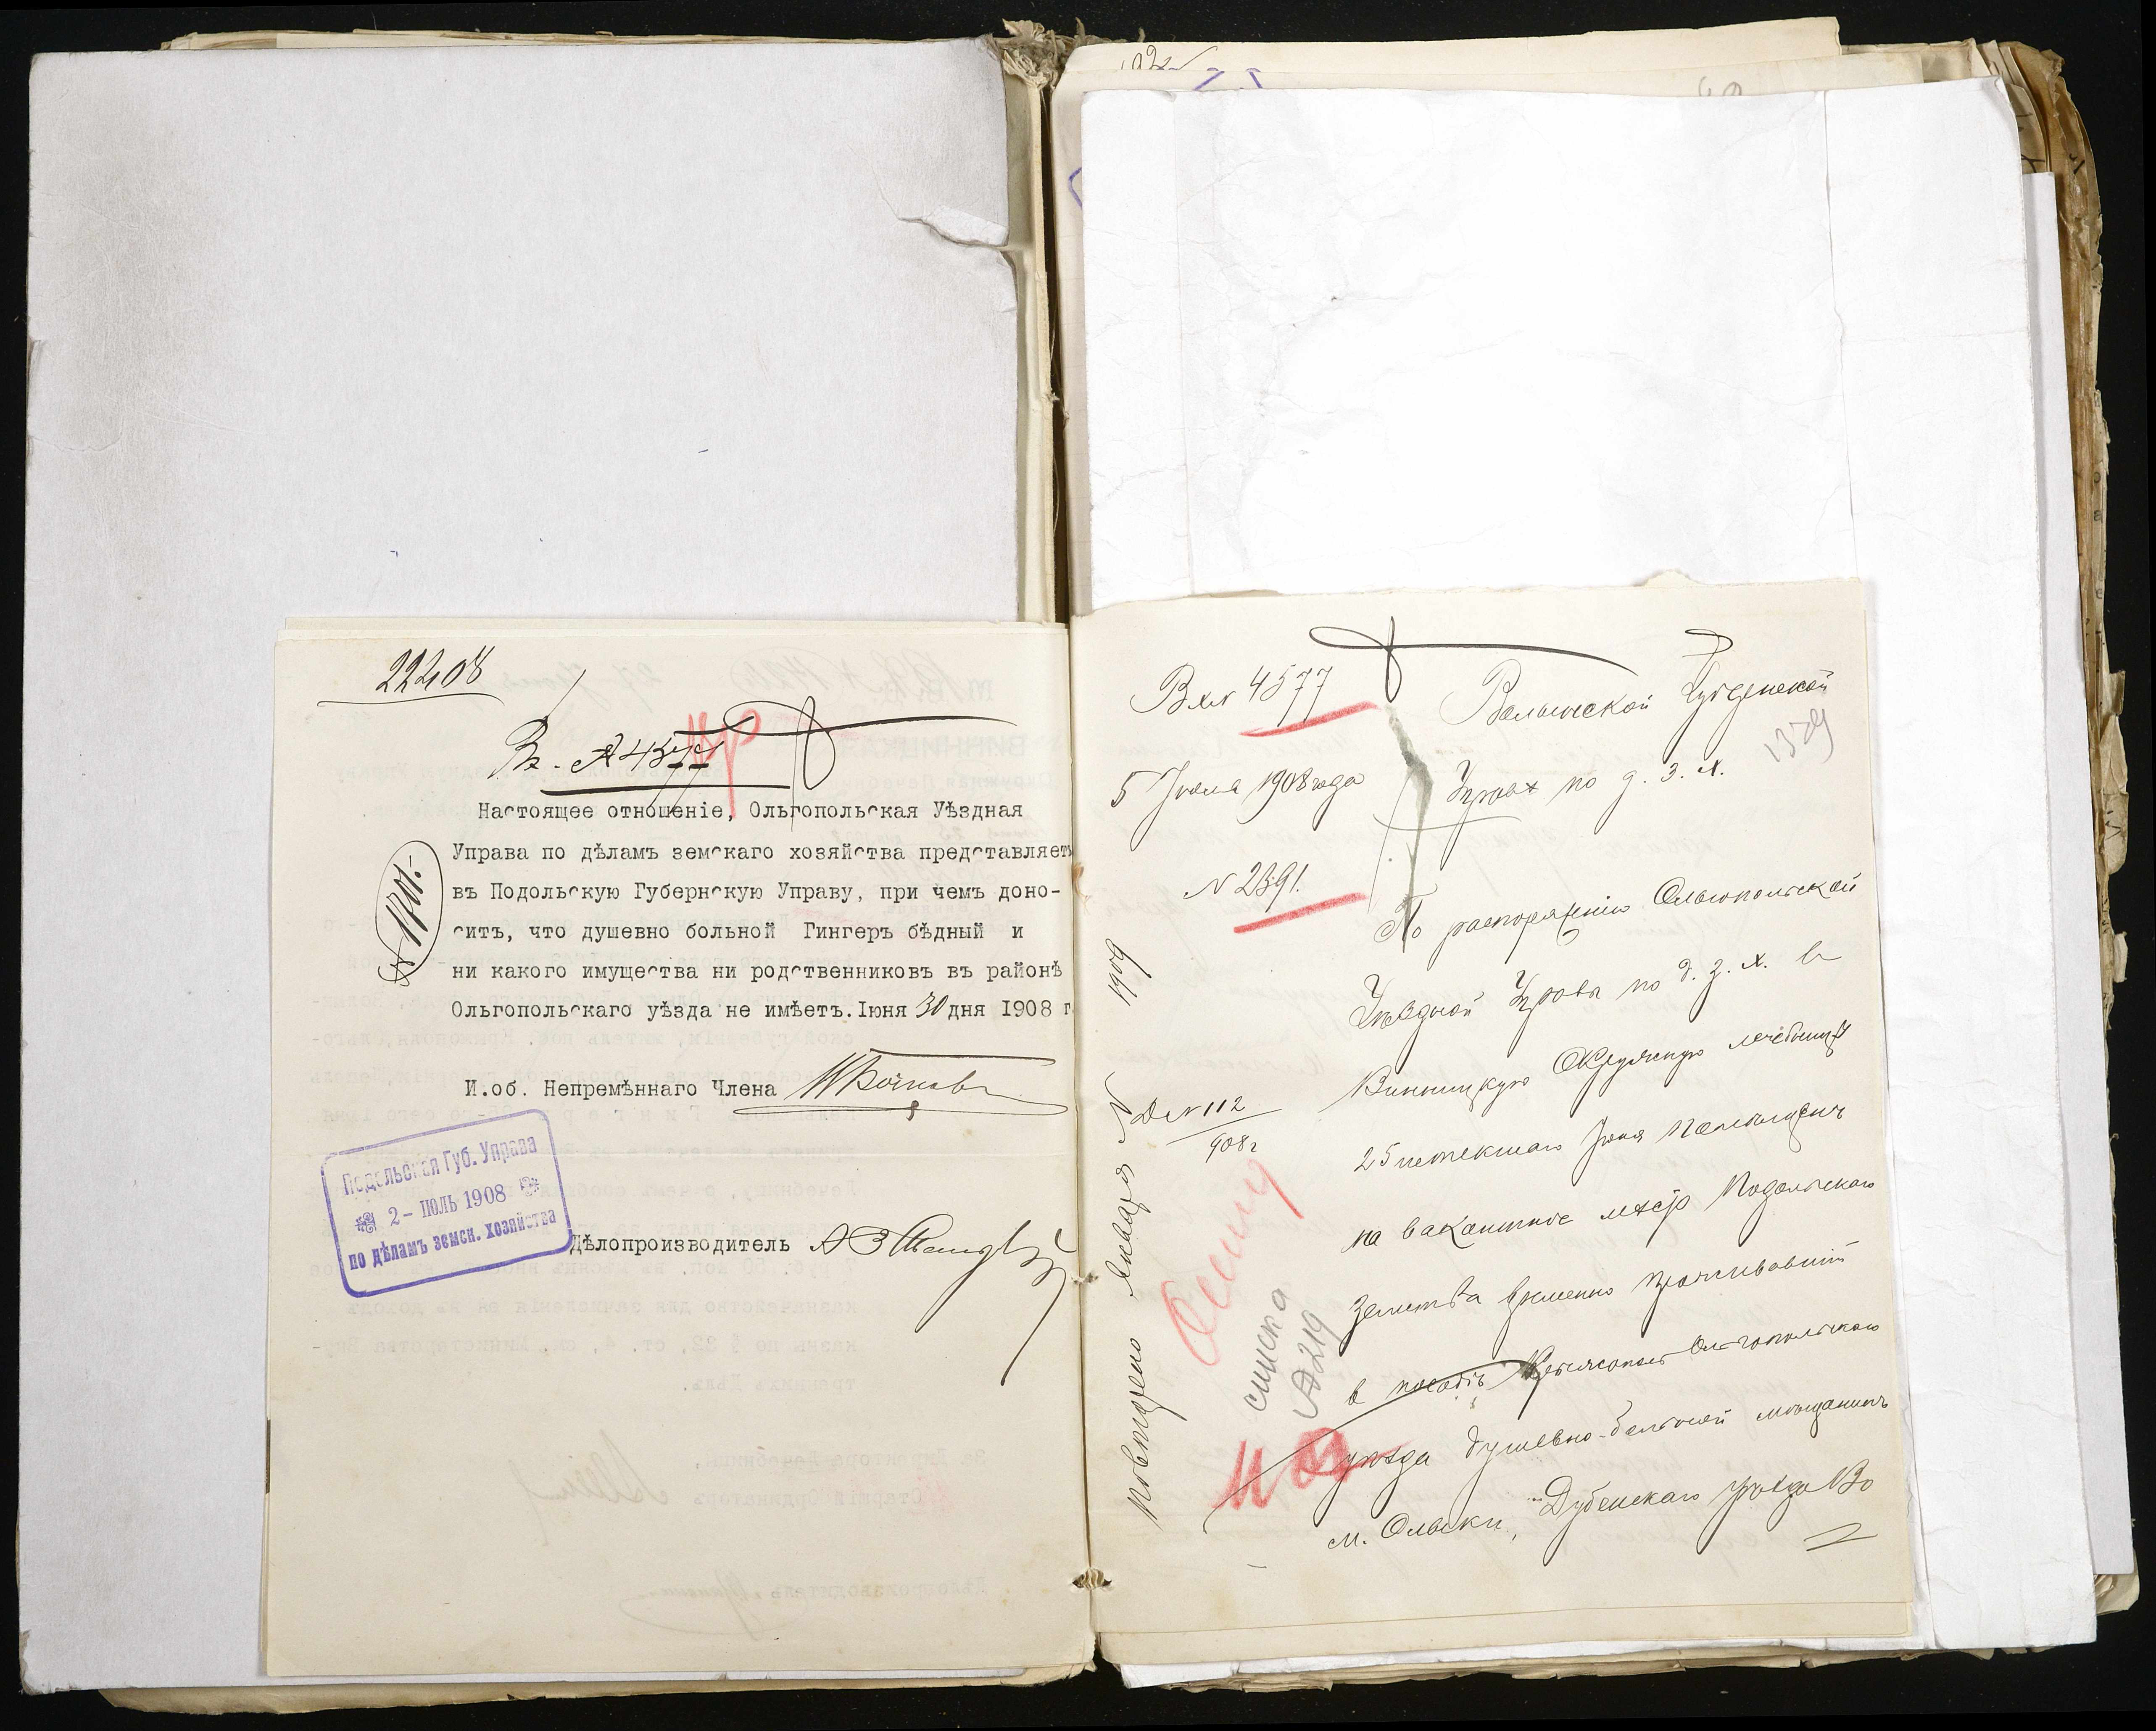 22408
Вх. № 4577
Настоящее отношеніе, Ольгопольская Уѣздная
Управа по дѣламъ земскаго хозяйства представляетъ
въ Подольскую Губернскую Управу, при чемъ доно-
ситъ, что душевно больной Гингеръ бѣдный и
ни какого имущества ни родственниковъ въ районѣ
Ольгопольскаго уѣзда не имѣетъ. Іюня 30 дня 1908 г
И.об. Непремѣннаго Члена
Подольская Губ. Управа
2- ІЮЛЬ 1908
по дѣламъ земск. хозяйства
Дѣлопроизводитель
Вх № 4577
5 Іюля 1908 года
№ 2391.
1909
Д № 112
908 г
списка
№ 219
Волынской Губернской
1329
Управѣ по д. з. х.
По распоряженію Ольгопольской
Уѣздной Управы по д. з. х. в
Винницкую Окружную лечебницу
25 истекшаго Іюня помѣщенъ
на вакантное мѣсто Подольскаго
Земства временно проживавшій
в посадѣ Крыжополь Ольгопольскаго
уѣзда душевно-больной мѣщанинъ
м. Олыки, Дубенскаго уѣзда Во